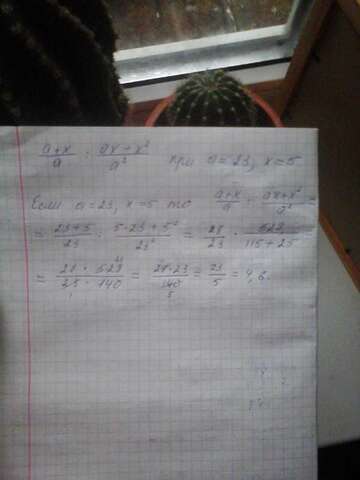 (a+x)/a : (ax+x²)/a² при a=23, x=5
Если a=23, x=5 то (a+x)/a : (ax+x²)/a² =
= (23+5)/23 : (5·23+5²)/23² = 28/23 · 529/(115+25) =
= (28·529)/(23·140) = (28·23)/140 = 23/5 = 4,6.